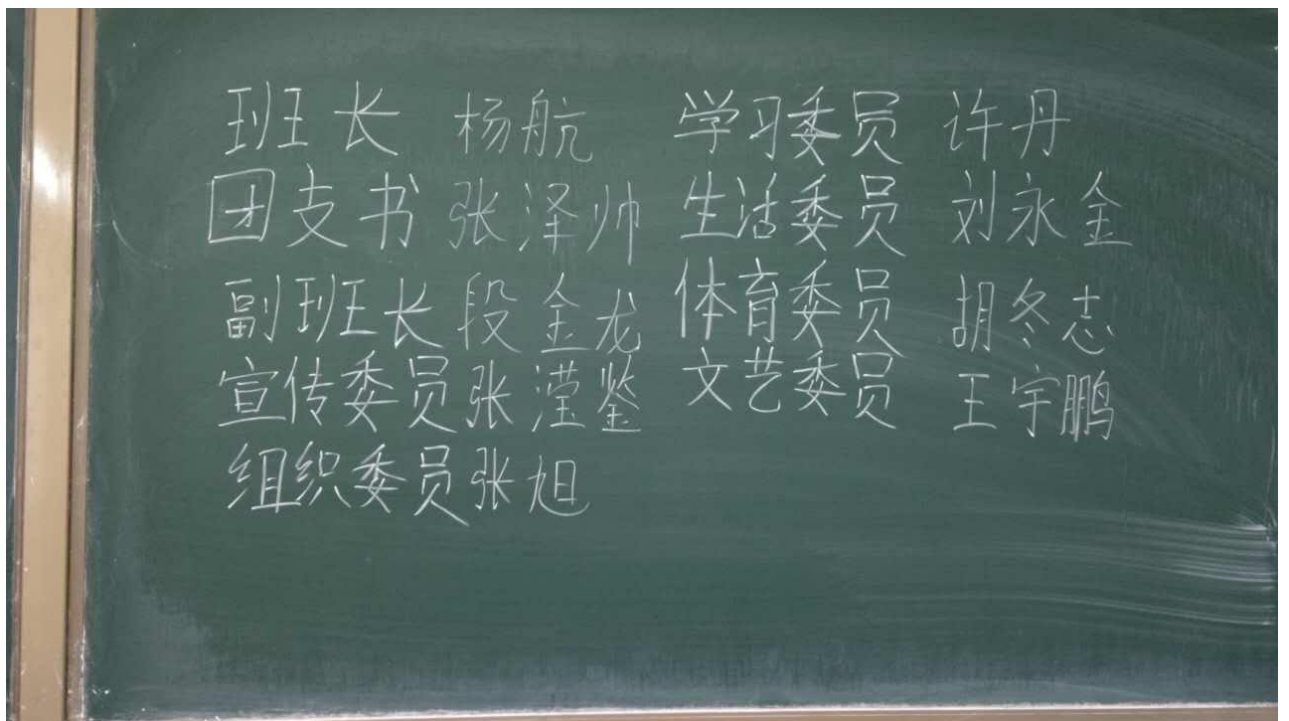 班长 杨航 学习委员 许丹
团支书 张泽帅 生活委员 刘永金
副班长 段金龙 体育委员 胡冬志
宣传委员 张滢鉴 文艺委员 王宇鹏
组织委员 张旭